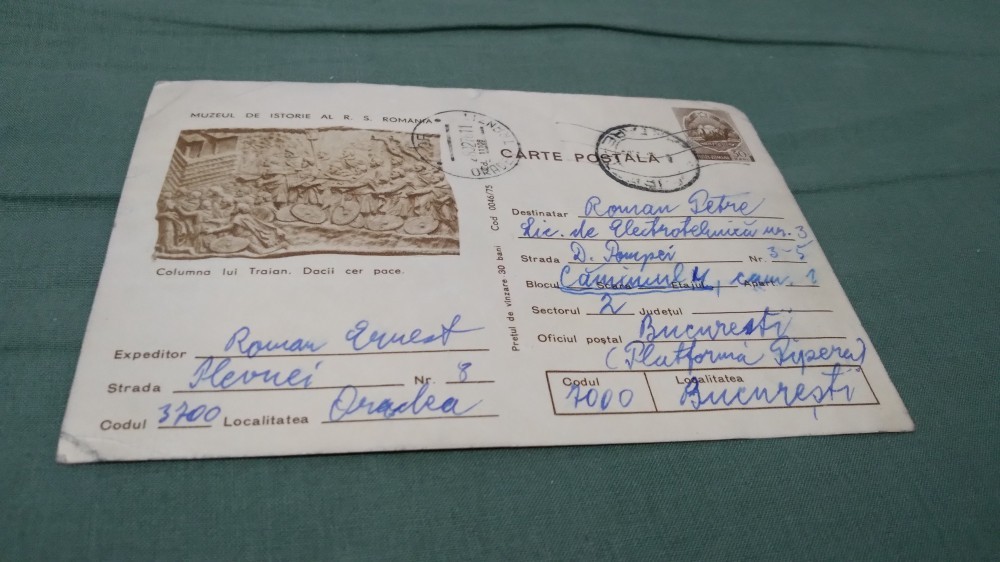 MUZEUL DE ISTORIE AL R. S. ROMANIA
Columna lui Traian. Dacii cer pace.
Expeditor Roman Ernest
Strada Plevnei Nr. 8
Codul 3700 Localitatea Oradea
Prețul de vînzare 30 bani Cod 0046/75
CARTE POSTALA
Destinatar Roman Petre
Lic. de Electrotehnică nr. 3
Strada D. Pompei Nr. 3-5
Blocul Scara Etajul Apart.
Căminul 4, cam. 1
Sectorul 2 Județul
Oficiul poștal București
(Platforma Pipera)
Codul 7000 Localitatea București